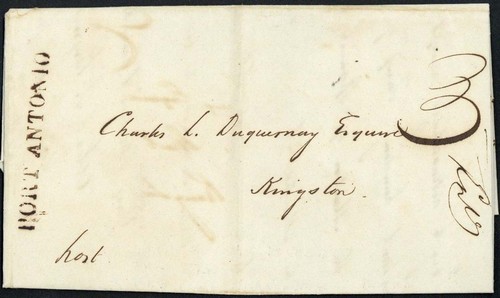 PORT ANTONIO
Charles L. Duquesnay Esquire
Kingston.
3